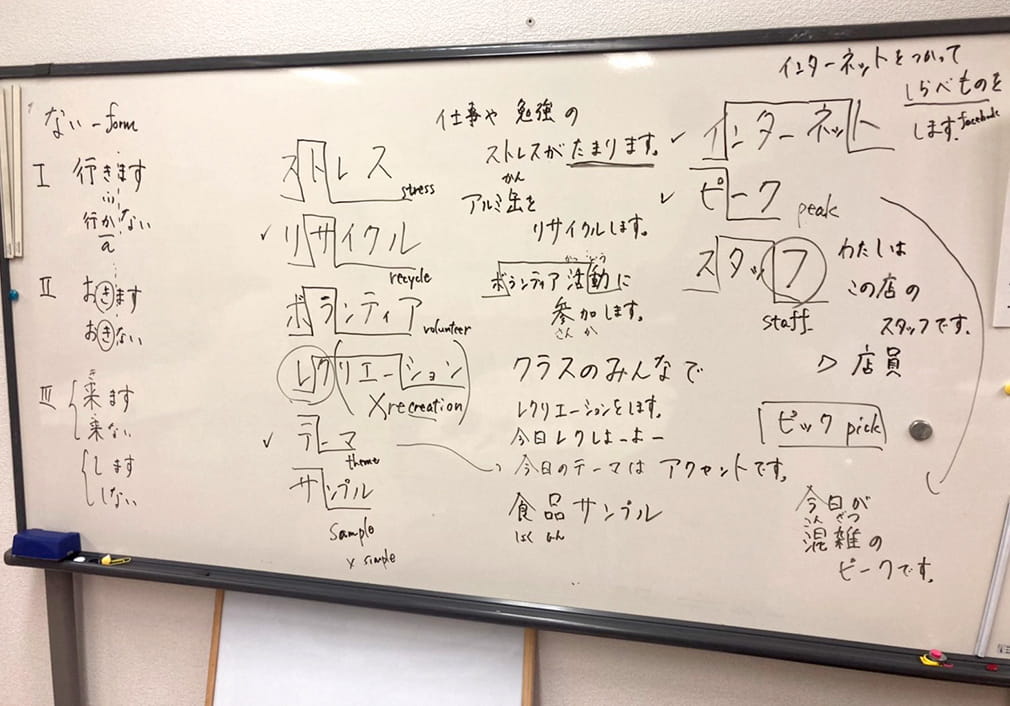 ない-form
I 行きます
行かない
a
II おきます
おきない
き
III 来ます
来ない
します
しない
ストレス
stress
リサイクル
recycle
ボランティア
volunteer
レクリエーション
X recreation
テーマ
theme
サンプル
sample
x simple
仕事や 勉強の
ストレスが たまります。
かん
アルミ缶を
リサイクルします。
かつどう
ボランティア 活動に
参加します。
さん か
クラスのみんなで
レクリエーションをします。
今日レクしよーよー
今日のテーマは アクセントです。
食品サンプル
しょく ひん
インターネットをつかって
しらべものを
します。 facebook
インターネット
ピーク
peak
スタッフ
staff
わたしは
この店の
スタッフです。
店員
ピック pick
今日が
こん ざつ
混雑の
ピークです。